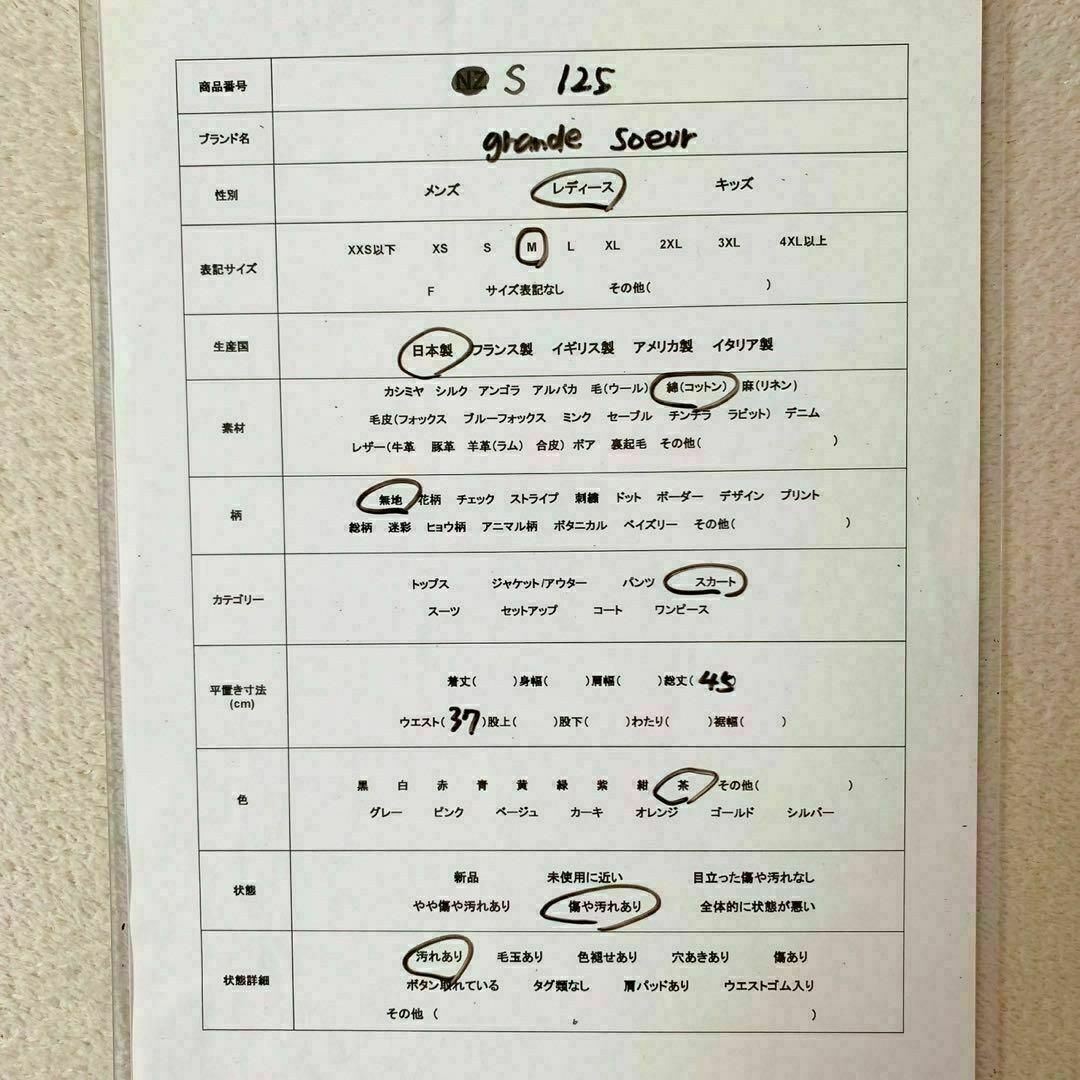 商品番号 NZ S 125
ブランド名 grande soeur
性別 メンズ レディース キッズ
表記サイズ
XXS以下 XS S M L XL 2XL 3XL 4XL以上
F サイズ表記なし その他( )
生産国 日本製 フランス製 イギリス製 アメリカ製 イタリア製
素材
カシミヤ シルク アンゴラ アルパカ 毛(ウール) 綿(コットン) 麻(リネン)
毛皮(フォックス ブルーフォックス ミンク セーブル チンチラ ラビット) デニム
レザー(牛革 豚革 羊革(ラム) 合皮) ボア 裏起毛 その他( )
柄
無地 花柄 チェック ストライプ 刺繍 ドット ボーダー デザイン プリント
総柄 迷彩 ヒョウ柄 アニマル柄 ボタニカル ペイズリー その他( )
カテゴリー
トップス ジャケット/アウター パンツ スカート
スーツ セットアップ コート ワンピース
平置き寸法
(cm)
着丈( )身幅( )肩幅( )総丈( 45 )
ウエスト( 37 )股上( )股下( )わたり( )裾幅( )
色
黒 白 赤 青 黄 緑 紫 紺 茶 その他( )
グレー ピンク ベージュ カーキ オレンジ ゴールド シルバー
状態
新品 未使用に近い 目立った傷や汚れなし
やや傷や汚れあり 傷や汚れあり 全体的に状態が悪い
状態詳細
汚れあり 毛玉あり 色褪せあり 穴あきあり 傷あり
ボタン取れている タグ類なし 肩パッドあり ウエストゴム入り
その他 ( )